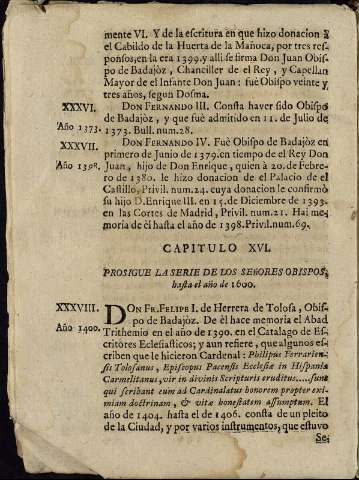 mente VI. Y de la escritura en que hizo donacion à
el Cabildo de la Huerta de la Mañoca, por tres res-
ponsos, en la era 1399. y alli se firma Don Juan Obis-
po de Badajòz, Chanciller de el Rey, y Capellan
Mayor de el Infante Don Juan: fuè Obispo veinte y
tres años, segun Dosma.
XXXVI. DON FERNANDO III. Consta haver sido Obispo
de Badajòz, y que fuè admitido en 11. de Julio de
Año 1373. 1373. Bull. num. 28.
XXXVII. DON FERNANDO IV. Fuè Obispo de Badajòz en
primero de Junio de 1379. en tiempo de el Rey Don
Año 1398. Juan, hijo de Don Enrique, quien à 20. de Febre-
ro de 1380. le hizo donacion de el Palacio de el
Castillo, Privil. num. 24. cuya donacion le confirmò
su hijo D. Enrique III. en 15. de Diciembre de 1393.
en las Cortes de Madrid, Privil. num. 21. Hai me-
moria de èl hasta el año de 1398. Privil. num. 69.
CAPITULO XVI.
PROSIGUE LA SERIE DE LOS SEÑORES OBISPOS,
hasta el año de 1600.
XXXVIII. DON FR. FELIPE I. de Herrera de Tolosa, Obis-
po de Badajòz. De èl hace memoria el Abad
Año 1400. Trithemio en el año de 1390. en el Catalago de Es-
critores Eclesiasticos; y aun refiere, que algunos es-
criben que le hicieron Cardenal: Philipus Ferrarien-
sis Tolosanus, Episcopus Pacensis Ecclesiæ in Hispania
Carmelitanus, vir in divinis Scripturis eruditus.....sunt
qui scribant eum ad Cardinalatus honorem propter exi-
miam doctrinam, & vitæ honestatem assumptum. El
año de 1404. hasta el de 1406. consta de un pleito
de la Ciudad, y por varios instrumentos, que estuvo
Se-